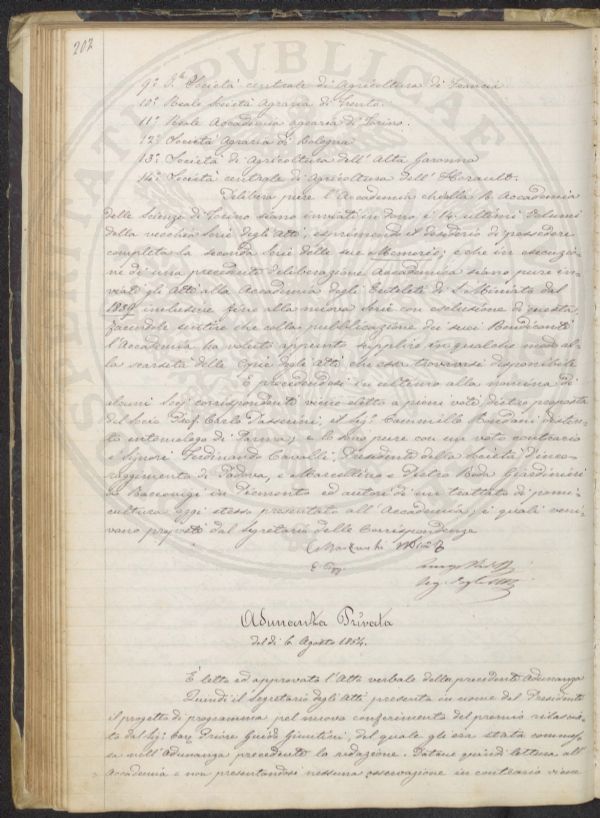 202
9° I.e Società centrale di Agricoltura di Francia
10° Reale Società Agraria di Trento.
11° Reale Accademia agraria di Torino.
12° Società Agraria di Bologna
13° Società di Agricoltura dell'Alta Garonna
14° Società centrale di Agricoltura dell'Hérault.
Delibera pure l'Accademia che alla R. Accademia
delle Scienze di Torino siano inviati in dono i 14 ultimi Volumi
della vecchia Serie degli Atti, esprimendo il desiderio di possedere
completa la seconda Serie delle sue Memorie; e che in esecuzio-
ne di una precedente deliberazione Accademica siano pure in-
viati gli Atti alla Accademia degli Euteleti di S. Miniato dal
1839 inclusive fino alla nuova Serie con esclusione di questa,
facendole sentire che colla pubblicazione dei suoi Rendiconti
l'Accademia ha voluto appunto supplire in qualche modo al-
la scarsità delle Copie degli Atti che essa trovavasi disponibile
E procedendosi in ultimo alla nomina di
alcuni Sigi corrispondenti viene eletto a pieni voti dietro proposta
del Socio Prof. Carlo Passerini, il Sigr Cammillo Rondani distin-
to entomologo di Parma; e lo sono pure con un voto contrario
i Signori Ferdinando Cavalli, Presidente della Società d'inco-
raggimento di Padova, e Marcellino e Pietro Roda Giardinieri
a Racconigi in Piemonte ed autori di un trattato di pomi-
cultura oggi stesso presentato all'Accademia; i quali veni-
vano proposti dal Segretario delle Corrispondenze
Adunanza Privata
del dì 6 Agosto 1854.
È letto ed approvato l'Atto verbale della precedente Adunanza
Quindi il Segretario degli Atti presenta in nome del Presidente
il progetto di programma pel nuovo conferimento del premio rilascia-
to dal Sigr Cav. Priore Guido Giuntini, del quale gli era stata commes-
sa nell'Adunanza precedente la redazione. Datane quindi lettura all'
Accademia e non presentandosi nessuna osservazione in contrario viene
SPERITATI PVBLICAE